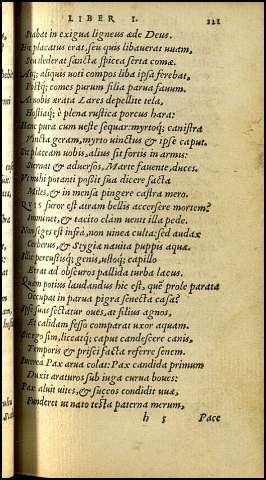 LIBER I. 121
Stabat in exigua ligneus æde Deus.
Hic placatus erat, seu quis libauerat uuam,
Seu dederat sanctæ spicea serta comæ.
Atq; aliquis uoti compos liba ipse ferebat,
Postq; comes purum filia parua fauum.
At nobis ærata Lares depellite tela,
Hostiaq; è plena rustica porcus hara:
Hanc pura cum ueste sequar: myrtoq; canistra
Vincta geram, myrto uinctus & ipse caput.
Sic placeam uobis, alius sit fortis in armis:
Sternat & aduersos, Marte fauente, duces.
Vt mihi potanti possit sua dicere facta
Miles, & in mensa pingere castra mero.
Quis furor est atram bellis accersere mortem?
Imminet, & tacito clàm uenit illa pede.
Non seges est infrà, non uinea culta: sed audax
Cerberus, & Stygiæ nauita puppis aquæ.
Illic percussisq; genis, ustoq; capillo
Errat ad obscuros pallida turba lacus.
Quàm potius laudandus hic est, quē prole parata
Occupat in parua pigra senecta casa?
Ipse suas sectatur oues, at filius agnos,
Et calidam fesso comparat uxor aquam.
Sic ego sim, liceatq; caput candescere canis,
Temporis & prisci facta referre senem.
Interea Pax arua colat: Pax candida primum
Duxit araturos sub iuga curua boues:
Pax aluit uites, & succos condidit uuæ,
Funderet ut nato testa paterna merum,
h 5 Pace